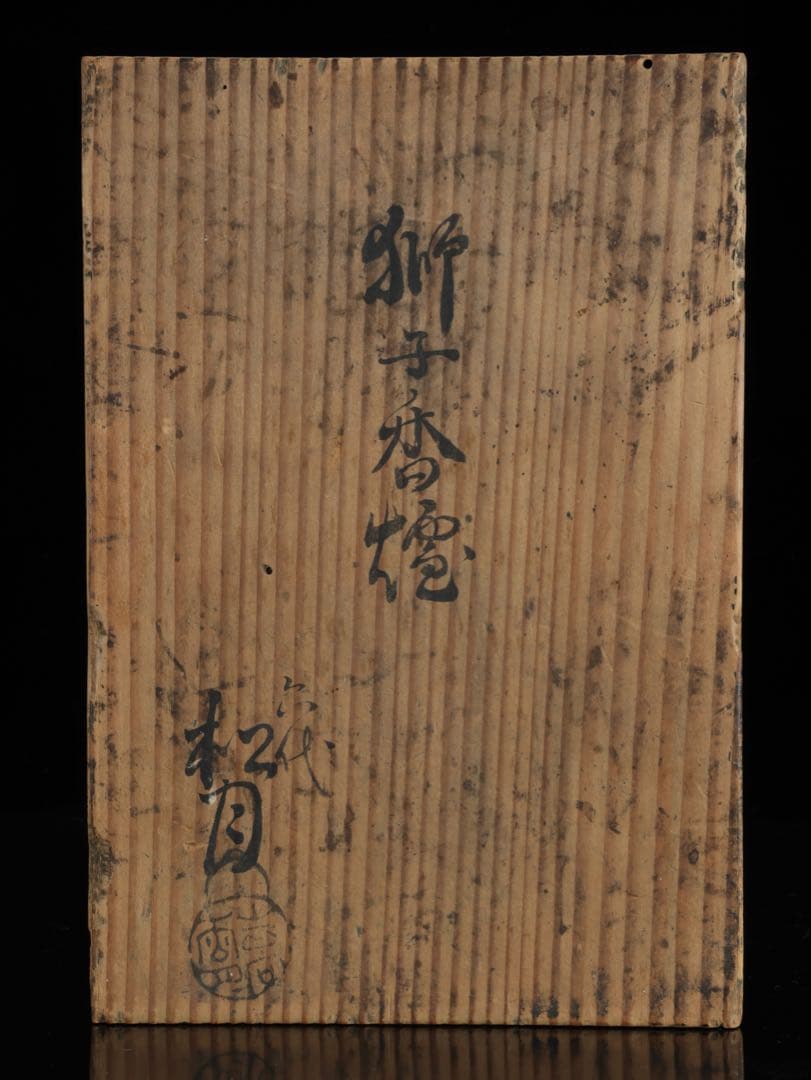 獅子香爐
六代
松月